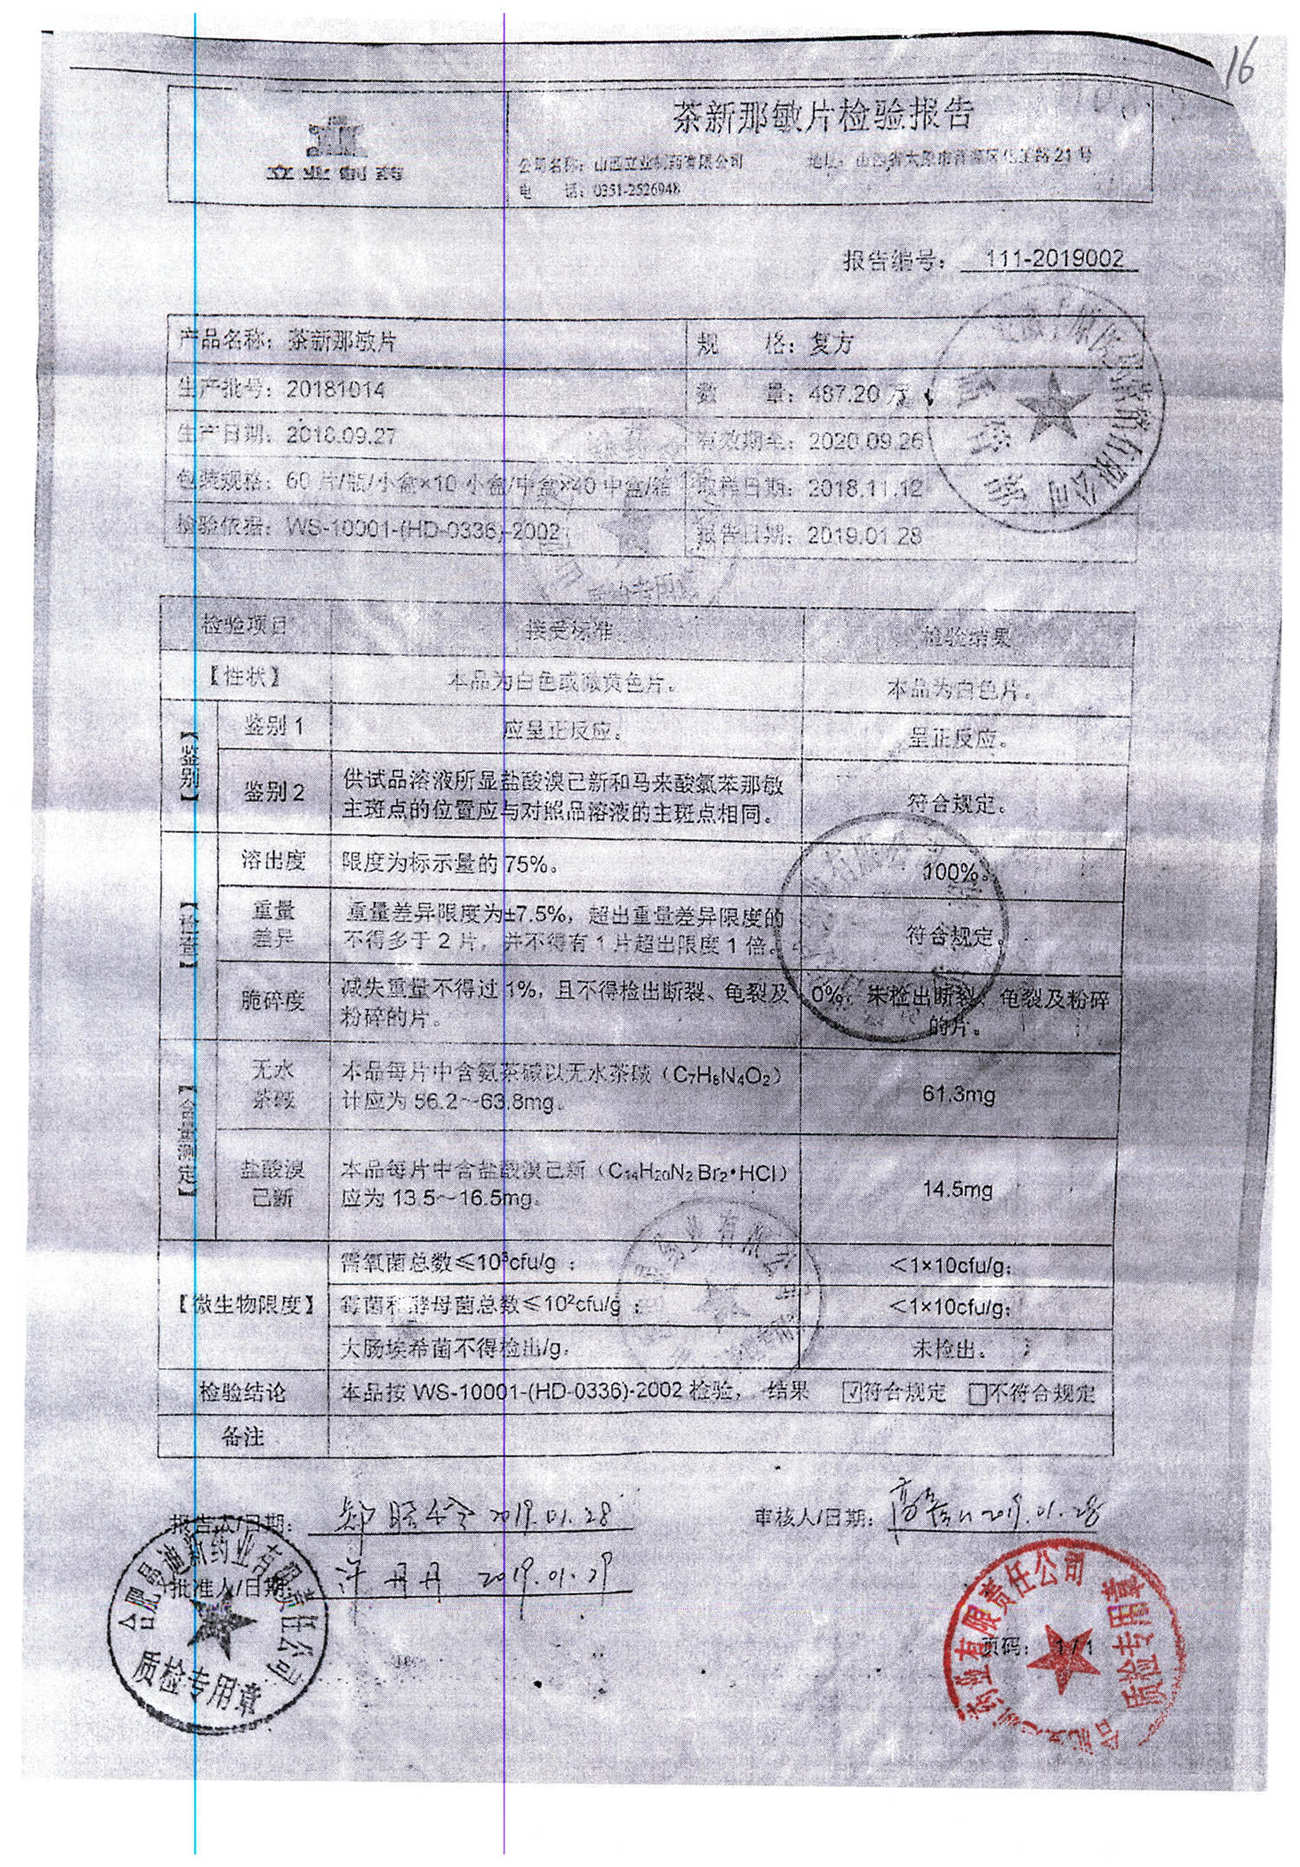 16
立业制药
茶新那敏片检验报告
公司名称：山西立业制药有限公司 地址：山西省太原市清源区化工路21号
电 话：0351-2526948
报告编号：111-2019002
产品名称：茶新那敏片 规 格：复方
生产批号：20181014 数 量：487.20万
生产日期：2018.09.27 有效期至：2020.09.26
包装规格：60片/瓶/小盒×10小盒/中盒×40中盒/箱 取样日期：2018.11.12
检验依据：WS-10001-(HD-0336)-2002 报告日期：2019.01.28
检验项目 接受标准 检验结果
【性状】 本品为白色或微黄色片。 本品为白色片。
【鉴别】
鉴别1 应呈正反应。 呈正反应。
鉴别2 供试品溶液所显盐酸溴己新和马来酸氯苯那敏
主斑点的位置应与对照品溶液的主斑点相同。 符合规定。
【检查】
溶出度 限度为标示量的75%。 100%。
重量
差异 重量差异限度为±7.5%，超出重量差异限度的
不得多于2片，并不得有1片超出限度1倍。 符合规定。
脆碎度 减失重量不得过1%，且不得检出断裂、龟裂及
粉碎的片。 0%，未检出断裂、龟裂及粉碎
的片。
【含量测定】
无水
茶碱 本品每片中含氨茶碱以无水茶碱（C₇H₈N₄O₂）
计应为56.2～63.8mg。 61.3mg
盐酸溴
己新 本品每片中含盐酸溴己新（C₁₄H₂₀N₂Br₂•HCl）
应为13.5～16.5mg。 14.5mg
【微生物限度】
需氧菌总数≤10³cfu/g； <1×10cfu/g；
霉菌和酵母菌总数≤10²cfu/g； <1×10cfu/g；
大肠埃希菌不得检出/g。 未检出。
检验结论 本品按WS-10001-(HD-0336)-2002检验， 结果 ☑符合规定 □不符合规定
备注
报告人/日期： 2019.01.28 审核人/日期： 2019.01.28
批准人/日期：许丹丹 2019.01.29
页码：1/1
合肥曼迪新药业有限责任公司
质检专用章
药业有限责任公司
质检专用章